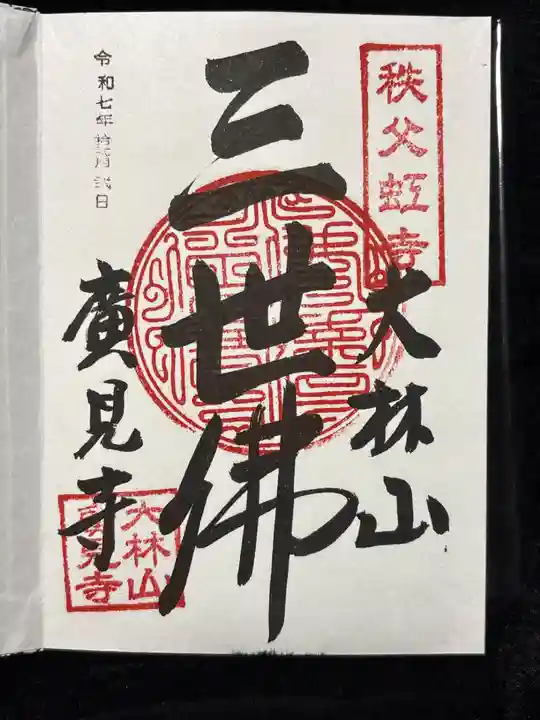 秩父虹寺
大林山
三世佛
廣見寺
大林山
廣見寺
令和七年拾月弐日